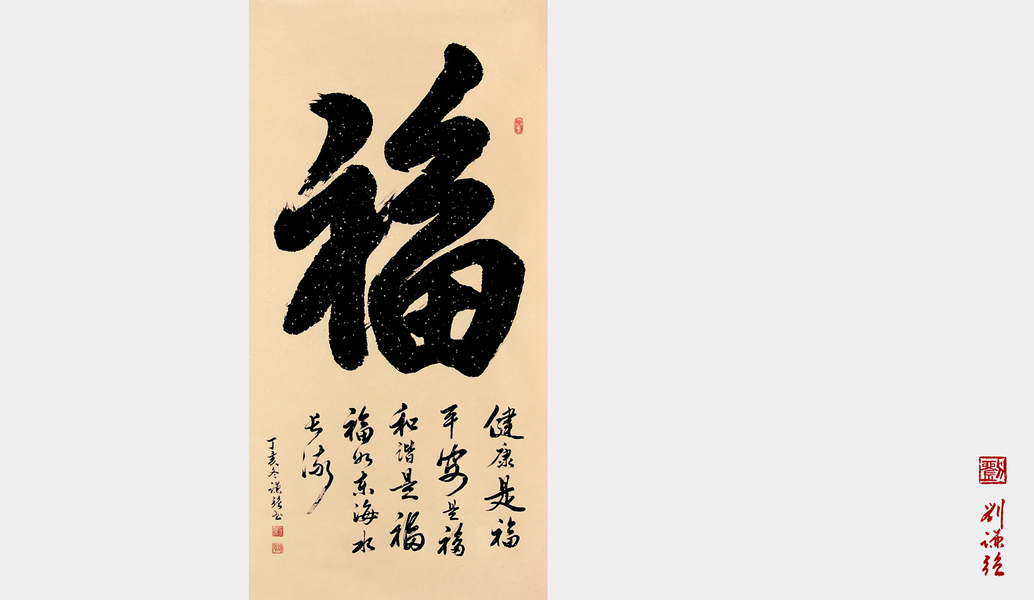 福
健康是福
平安是福
和谐是福
福如东海水
长流
丁亥冬谦弦书
刘谦弦